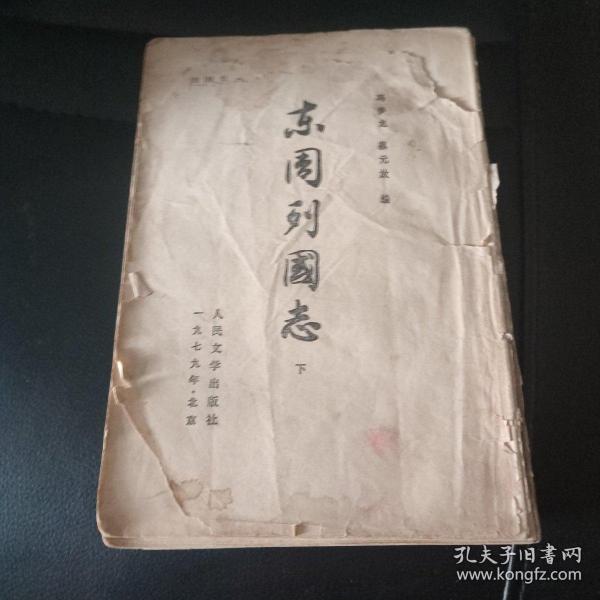 冯梦龙 蔡元放 编
东周列國志
下
人民文学出版社
一九七九年·北京
孔夫子旧书网
www.kongfz.com